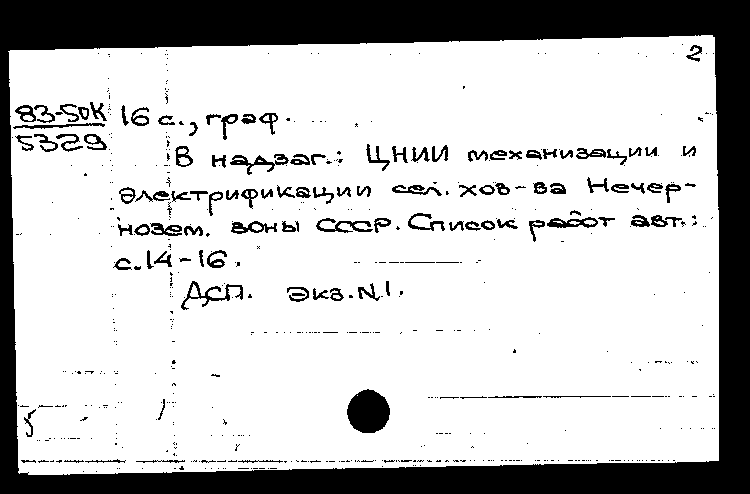 2
83-5ДК 16 с., граф.
5329
В надзаг.: ЦНИИ механизации и
электрификации сел. хоз-ва Нечер-
нозем. зоны СССР. Список работ авт.:
с.14-16.
ДСП. Экз.N1.